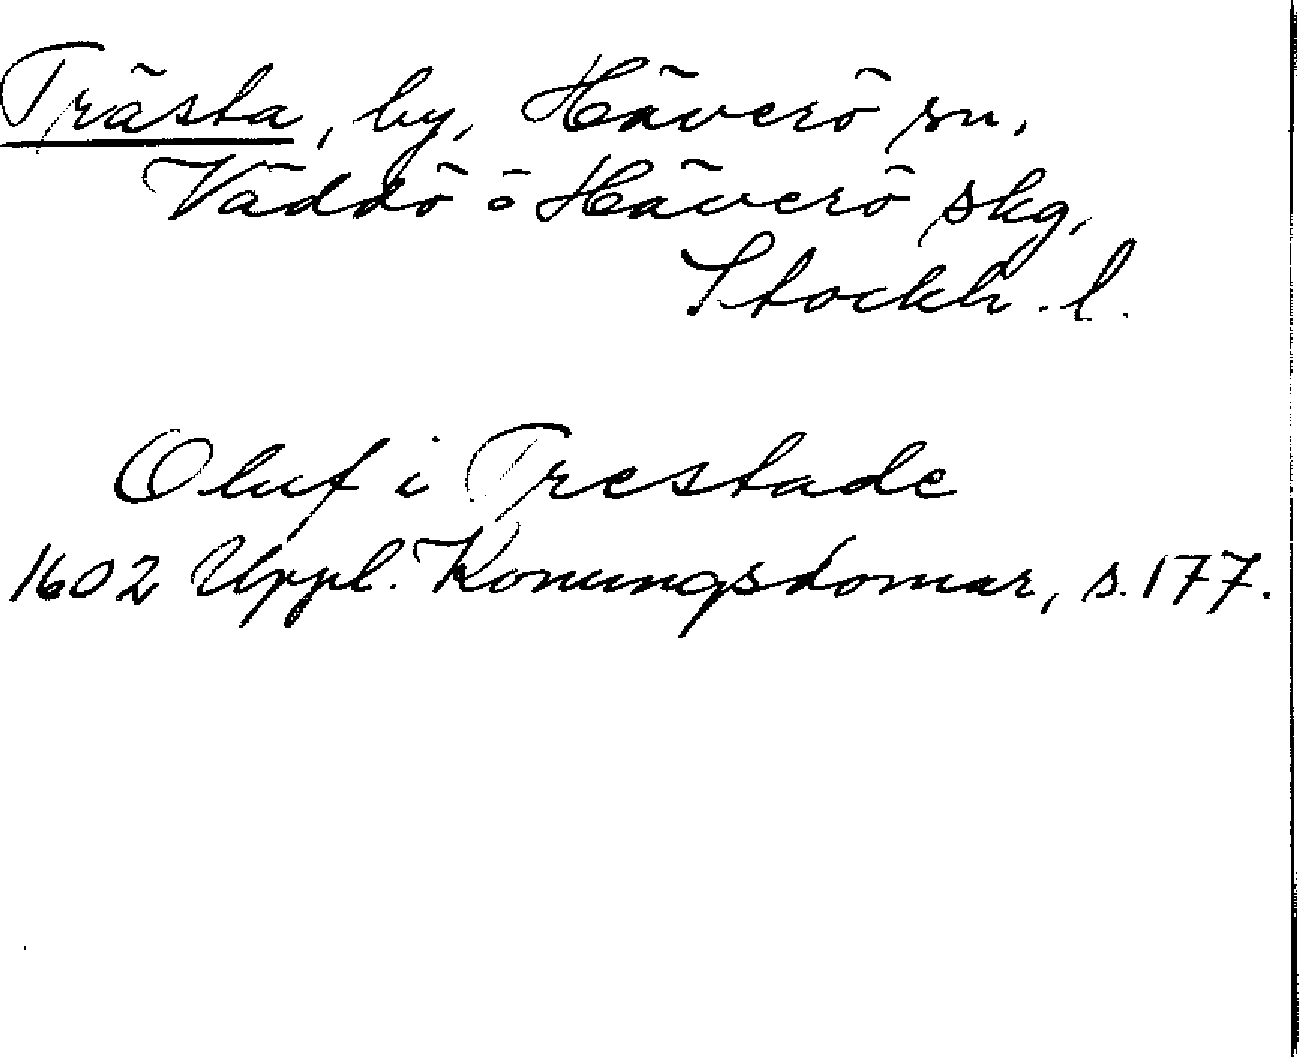 Trästa, by, Häverö sn,
Väddö o Häverö skg,
Stockh. l.
Oluf i Trestade
1602 Uppl. Konungsdomar, s. 177.